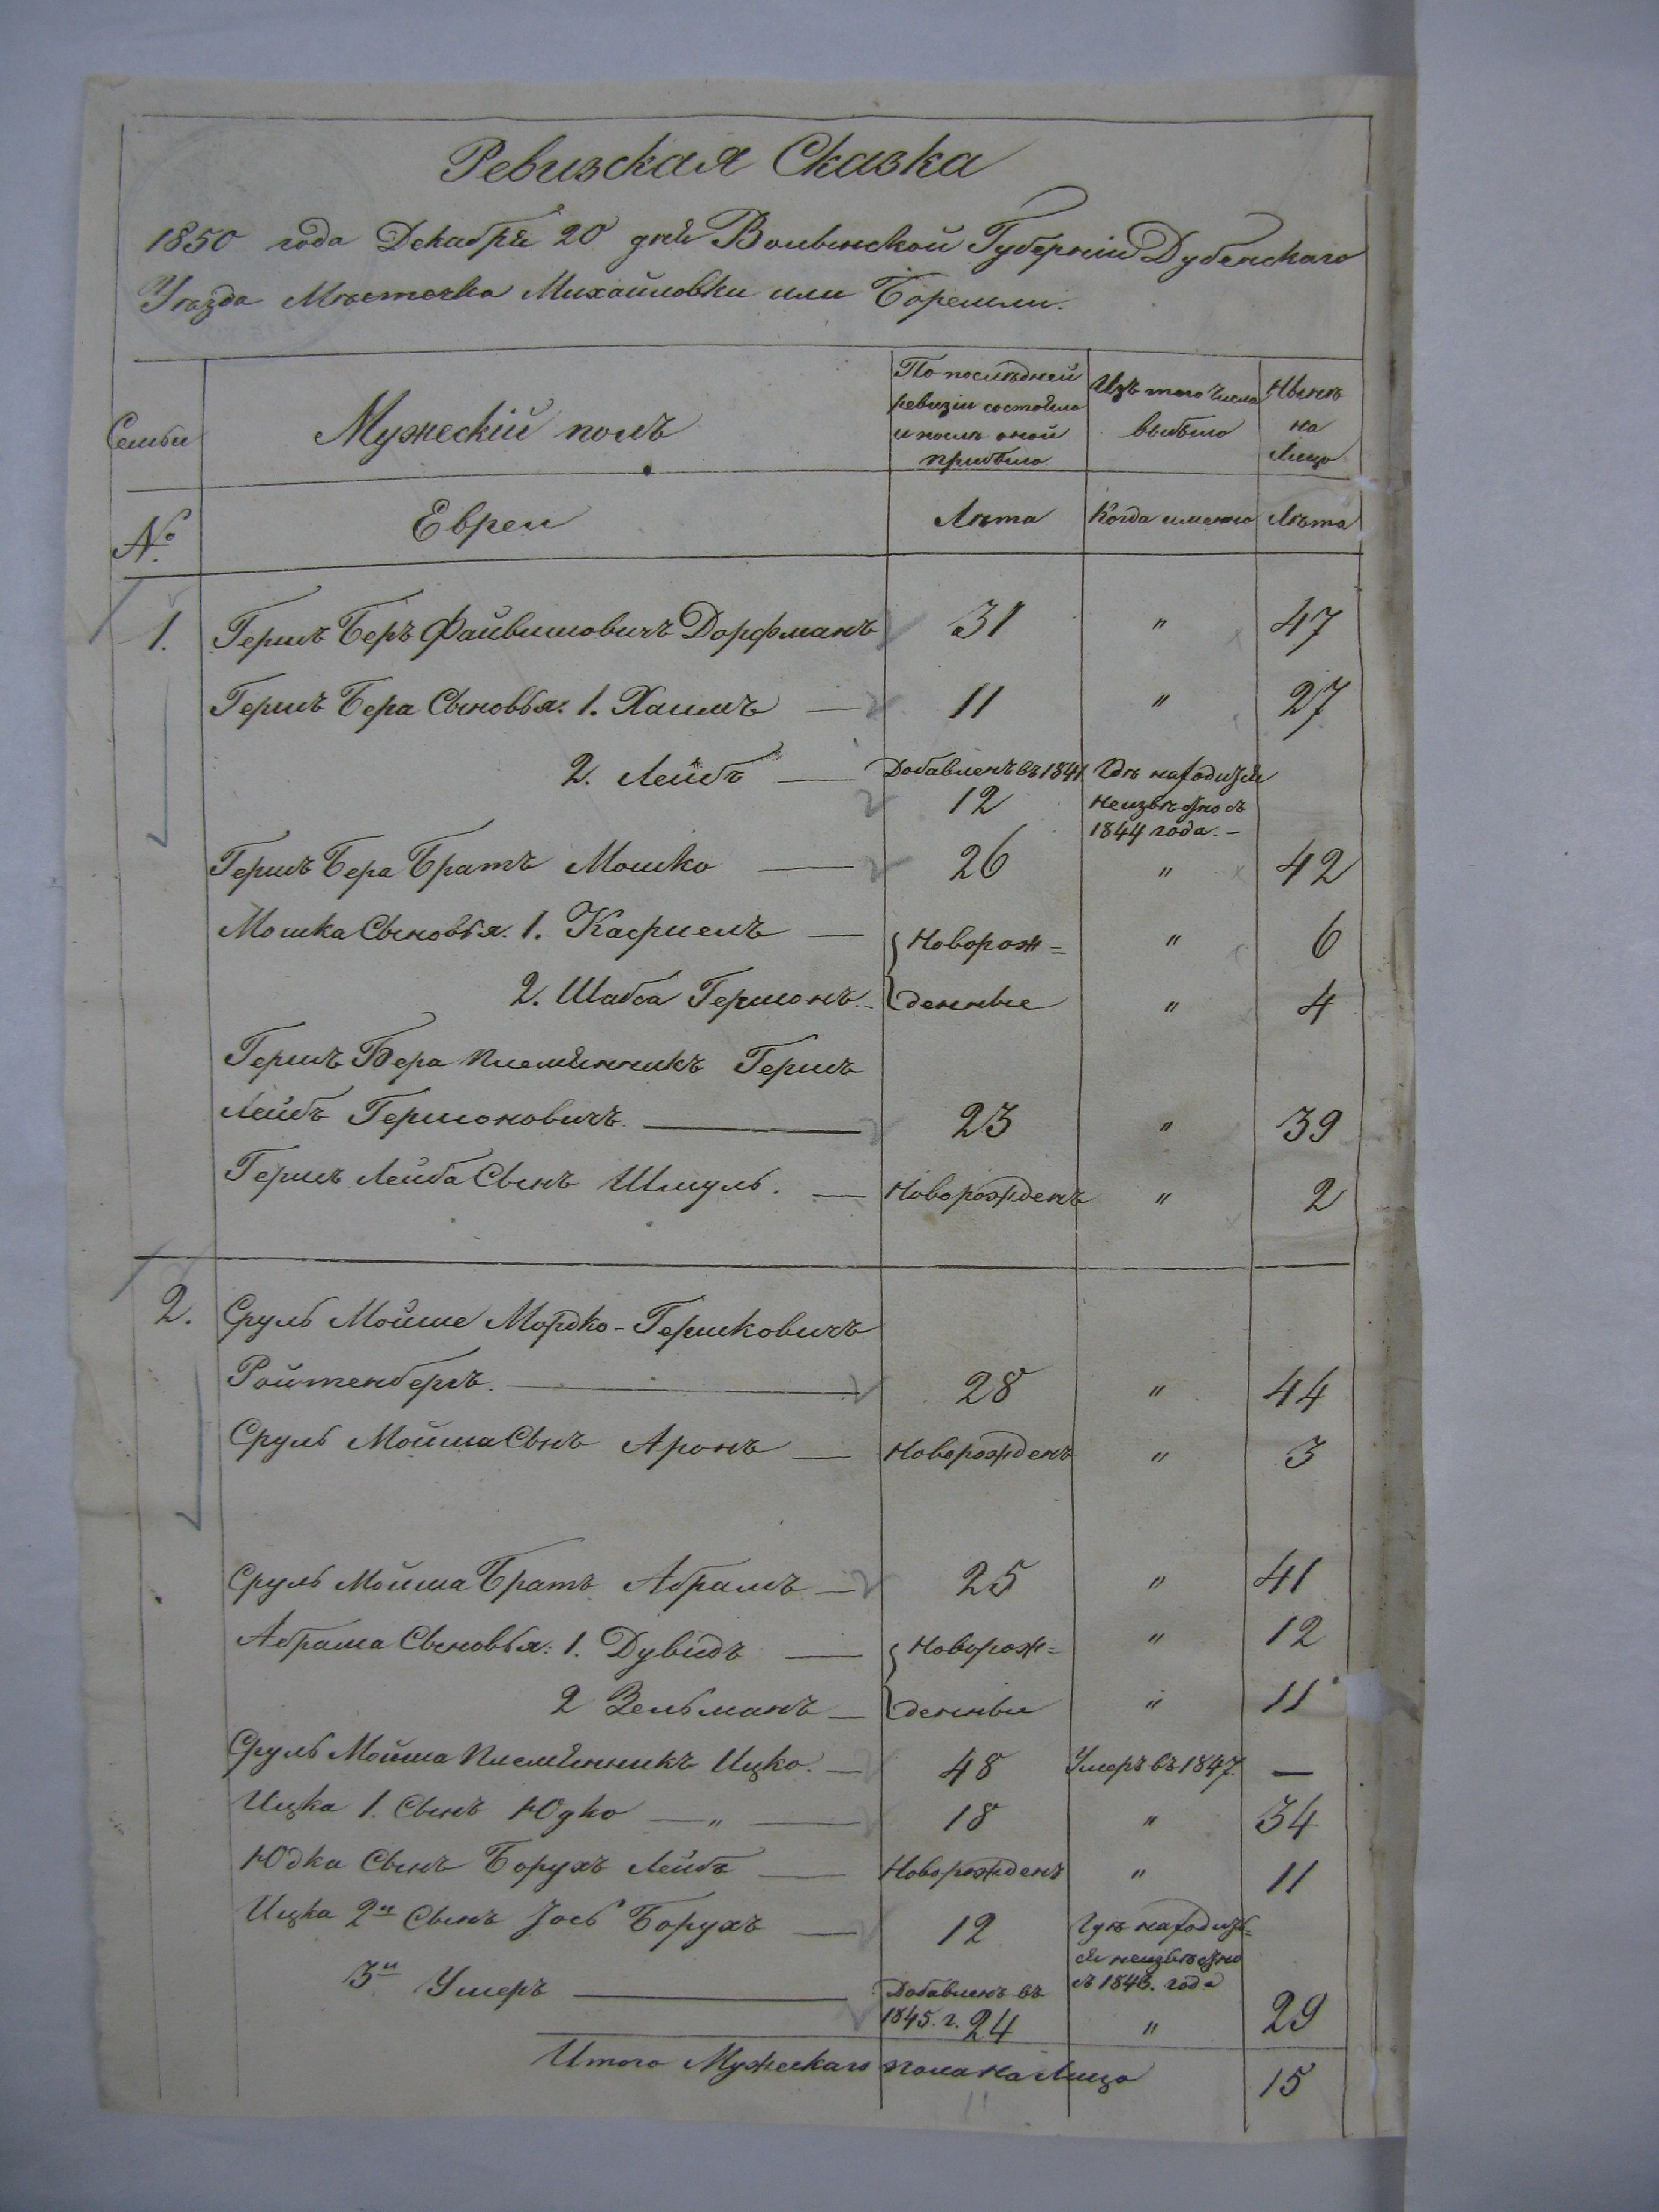 Ревизская Сказка
1850 года Декабря 20 дня Волынской Губерніи Дубенскаго
Уѣзда Мѣстечка Михайловки или Боремли.
Семьи
Мужескій полъ
По послѣдней
ревизіи состояло
и послѣ оной
прибыло
Изъ того числа
выбыло
Нынѣ
на
Лицо
№
Евреи
Лѣта
Когда именно
Лѣта
1. Гершъ Беръ Файвишовичъ Дорфманъ 31 " 47
Гершъ Бера Сыновья: 1. Хаимъ — 11 " 27
2. Лейбъ — Добавленъ въ 1841 Гдѣ находится
12 неизвѣстно съ
1844 года. —
Гершъ Бера Братъ Мошко — 26 " 42
Мошка Сыновья. 1. Кафриелъ — Новорож= " 6
2. Шабса Гершонъ — денные " 4
Гершъ Бера племянникъ Гершъ
Лейбъ Гершоновичъ. — 23 " 39
Гершъ Лейба Сынъ Шмуль. — Новорожденъ " 2
2. Сруль Мойше Мордко-Гершковичъ
Ройтенбергъ. — 28 " 44
Сруль Мойша Сынъ Аронъ — Новорожденъ " 3
Сруль Мойша Братъ Абрамъ — 25 " 41
Абрама Сыновья: 1. Дувидъ — Новорож= " 12
2 Зельманъ — денные " 11
Сруль Мойша племянникъ Ицко. — 48 Умеръ въ 1847. —
Ицка 1. Сынъ Юдко — " — 18 " 34
Юдка Сынъ Борухъ Лейбъ — Новорожденъ " 11
Ицка 2й Сынъ Іось Борухъ — 12 Гдѣ находит=
ся неизвѣстно
съ 1843. года
3й Умеръ — Добавленъ въ
1845. г. 24 " 29
Итого Мужескаго пола на Лицо 15